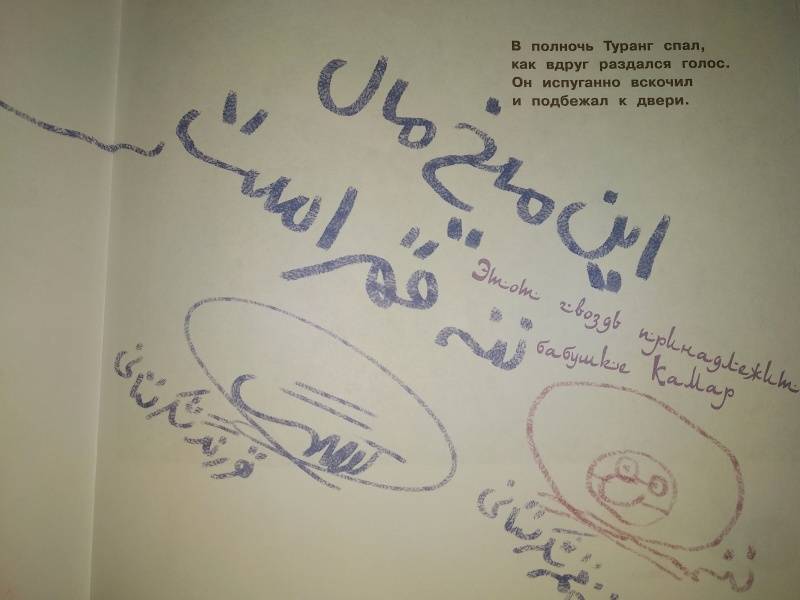 В полночь Туранг спал,
как вдруг раздался голос.
Он испуганно вскочил
и подбежал к двери.
این میخ مال
ننه قمر است
Этот гвоздь принадлежит
бабушке Камар
ننه